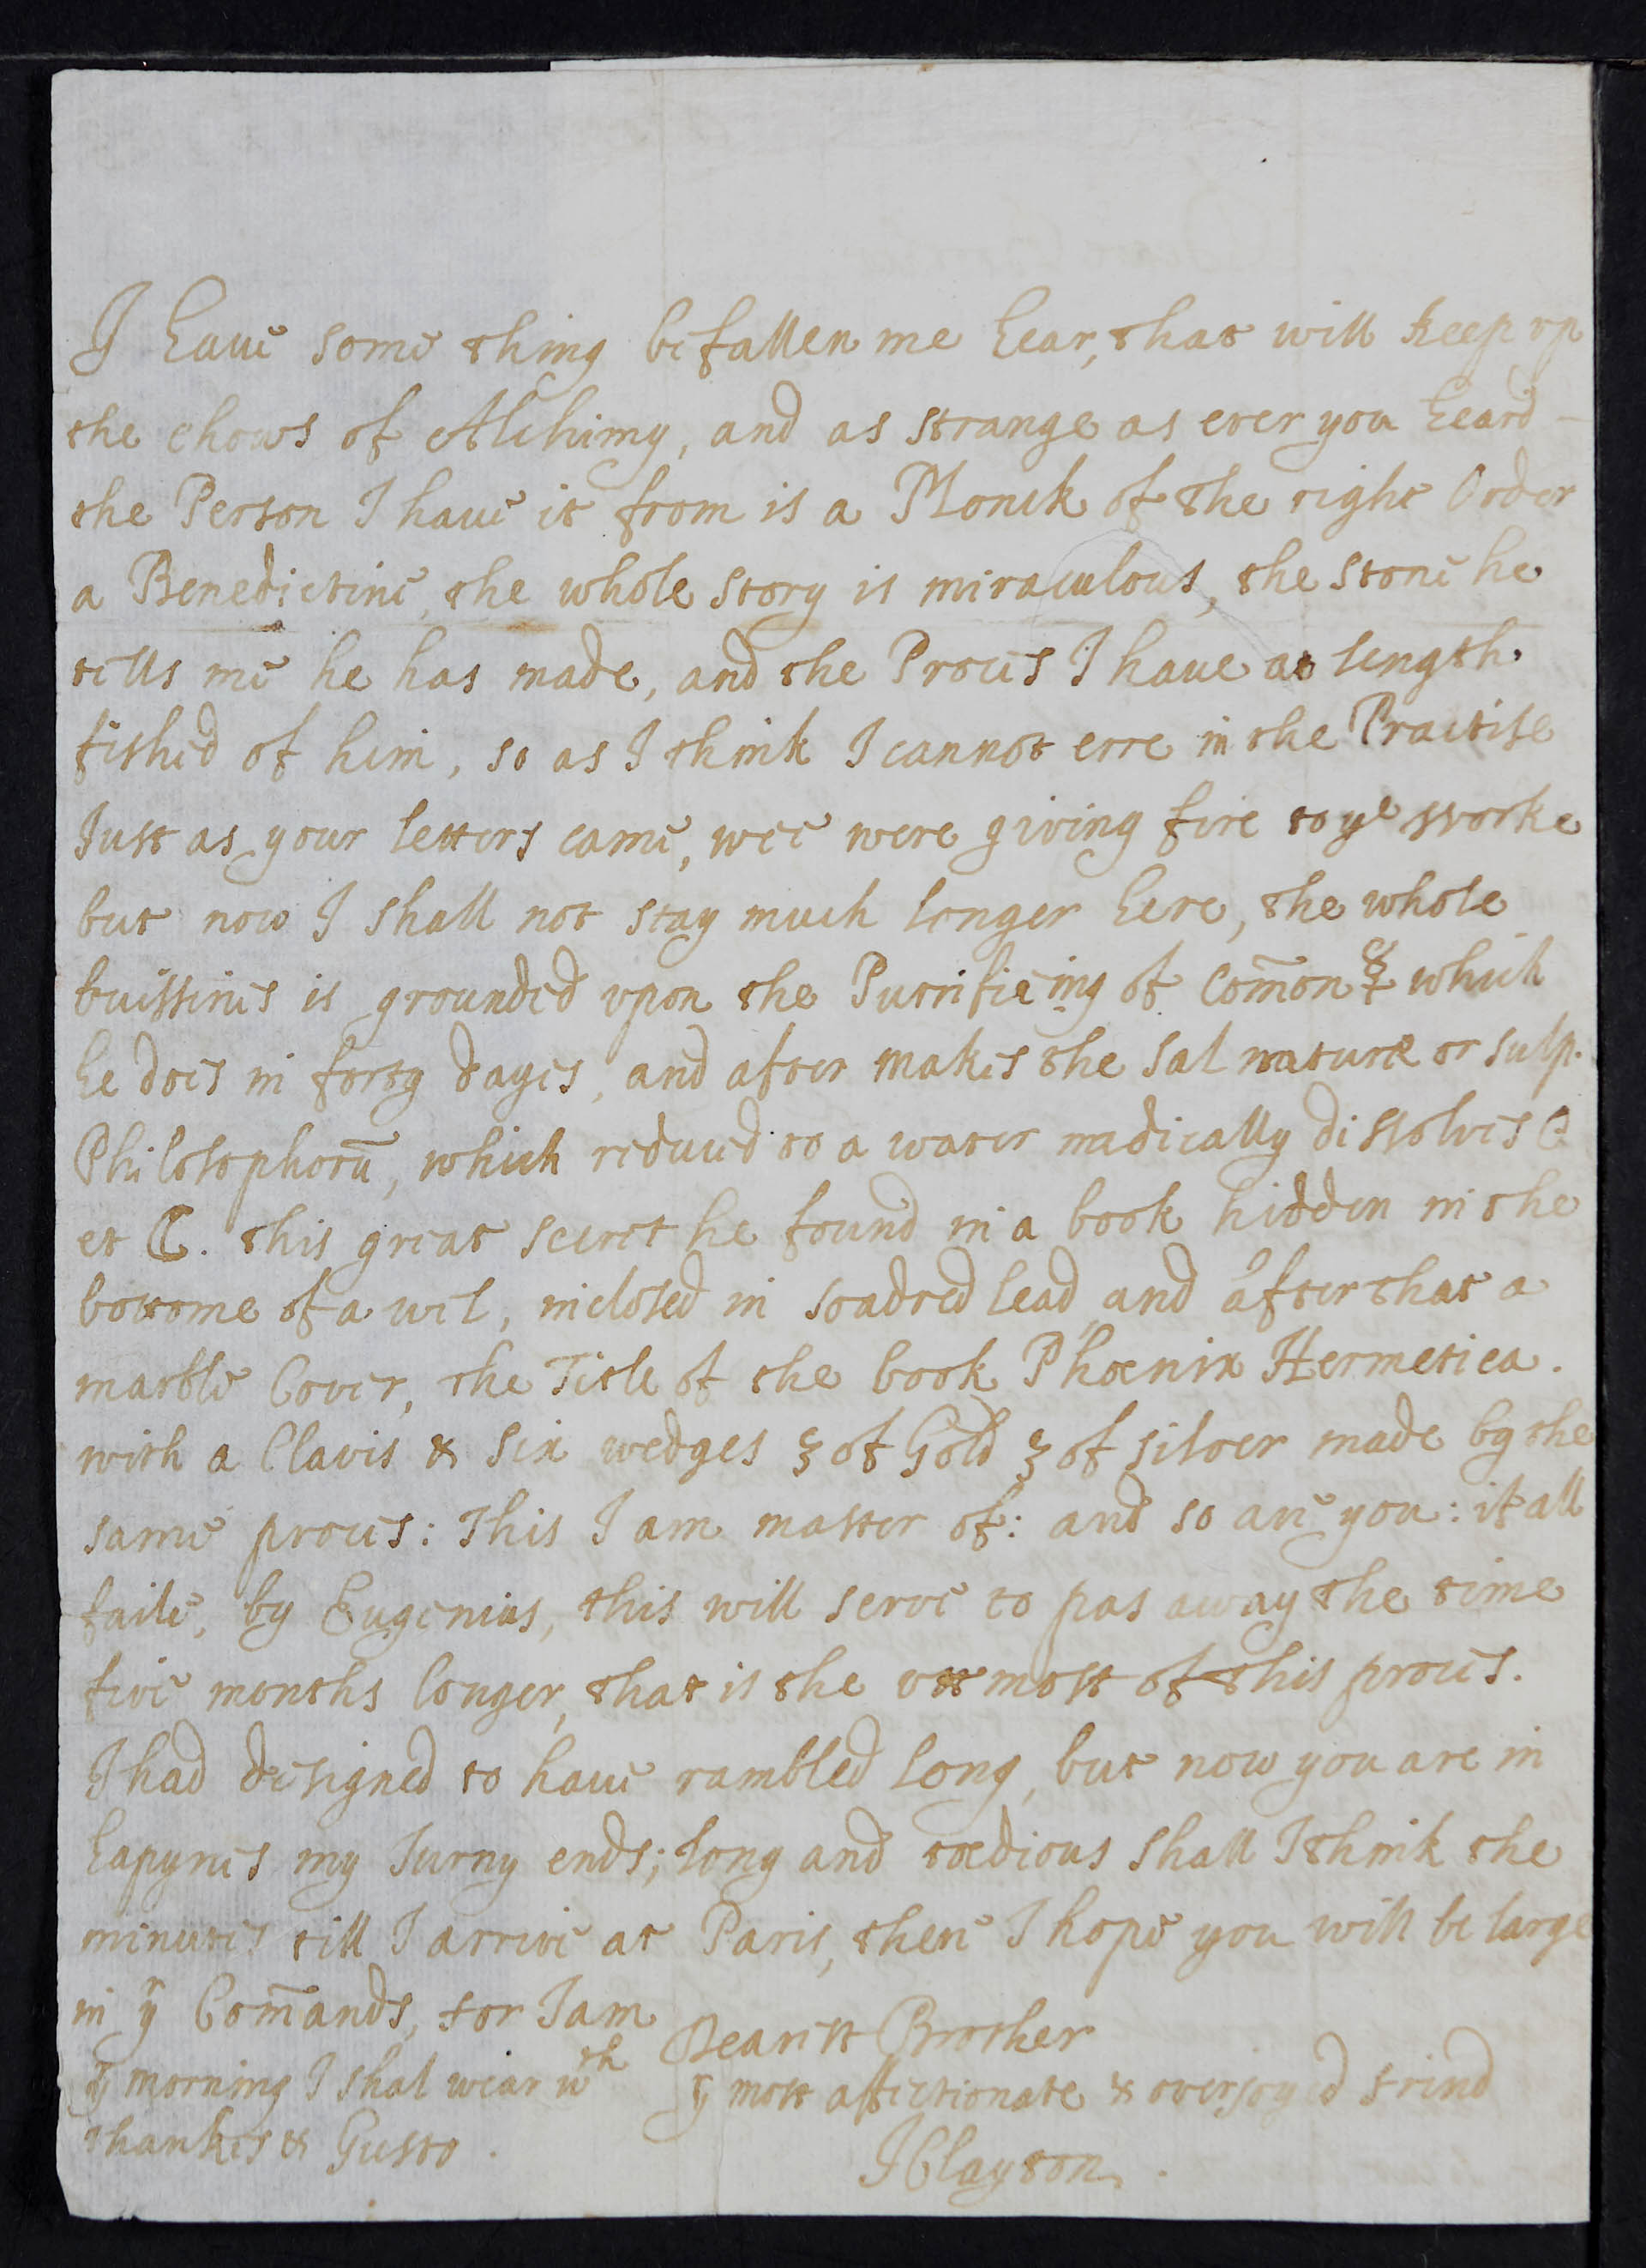 I have some thing befallen me hear, that will keep vp
the chows of Alchimy, and as strange as ever you heard -
the Person I have it from is a Monck of the right Order
a Benedictine, the whole story is miraculous, the stone he
tells me he has made, and the Proces I have at length
fished of him, so as I think I cannot erre in the Practise
Just as your letters came, wee were giving fire to ye worke
but now I shall not stay much longer here, the whole
buissines is grounded vpon the Putrifieing of Com̄on ☿ which
he does in forty dayes, and after makes the sal naturæ or sulp.
Philosophorū, which reduced to a water radically dissolves ☉
et ☾. this great secret he found in a book hidden in the
bottome of a wel, inclosed in soadred lead, and after that a
marble Cover, the Title of the book Phœnix Hermetica.
with a Clavis & six wedges 3 of Gold 3 of silver made by the
same proces: This I am master of: and so are you: if all
faile, by Eugenius, this will serve to pas away the time
five months longer, that is the vttmost of this proces.
I had designed to have rambled long, but now you are in
my Jurny ends; long and tœdious shall I think the
minutes till I arrive at Paris, there I hope you will be large
in yr Com̄ands, for I am
Dearest Brother
yr morning I shal wear wth yr most affectionate & overjoyed frind
thankes & Gusto.
JClayton.